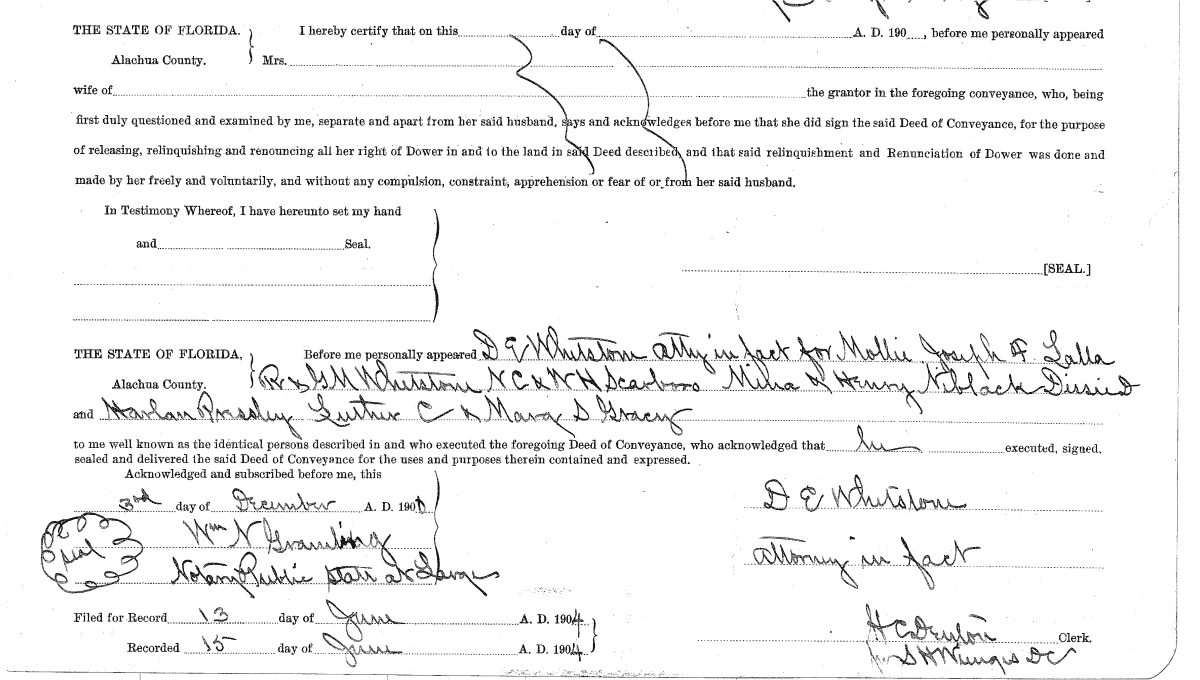 THE STATE OF FLORIDA. I hereby certify that on this day of A. D. 190 , before me personally appeared
Alachua County. Mrs.
wife of the grantor in the foregoing conveyance, who, being
first duly questioned and examined by me, separate and apart from her said husband, says and acknowledges before me that she did sign the said Deed of Conveyance, for the purpose
of releasing, relinquishing and renouncing all her right of Dower in and to the land in said Deed described, and that said relinquishment and Renunciation of Dower was done and
made by her freely and voluntarily, and without any compulsion, constraint, apprehension or fear of or from her said husband.
In Testimony Whereof, I have hereunto set my hand
and Seal.
[SEAL.]
THE STATE OF FLORIDA, Before me personally appeared D E Whitstone atty in fact for Mollie Joseph F Lalla
Alachua County. R & G M Whitstone N C & N H Scarboro & Henry Niblack
and Harlan Pressley Luther C & Mary S Gracy
to me well known as the identical persons described in and who executed the foregoing Deed of Conveyance, who acknowledged that he executed, signed,
sealed and delivered the said Deed of Conveyance for the uses and purposes therein contained and expressed.
Acknowledged and subscribed before me, this
3rd day of December A. D. 190
D E Whitstone
seal Wm N Gramling
attorney in fact
Notary Public State at Large
Filed for Record 13 day of June A. D. 1904
H C Denton Clerk.
Recorded 15 day of June A. D. 1904
S H Wienges DC